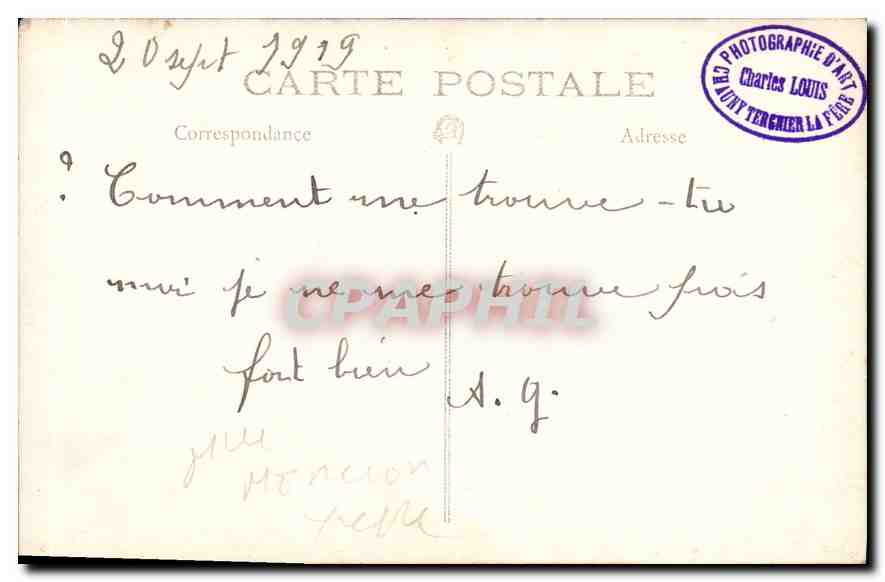 20 sept 1919
CARTE POSTALE
PHOTOGRAPHIE D'ART
Charles LOUIS
CHAUNY TERGNIER LA FÈRE
Correspondance
Adresse
? Comment me trouve-tu
moi je ne me trouve pas
fort bien
A. G.
CPAPHIL